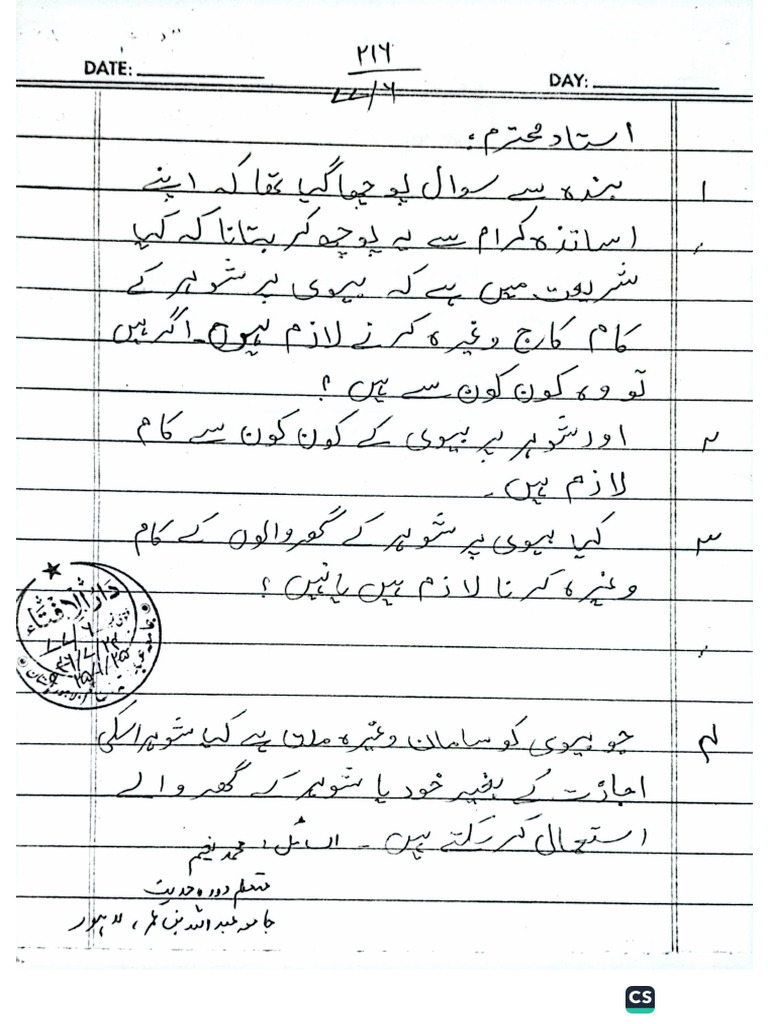 DATE:
۲۱۶
DAY:
۷۷/۶
استاد محترم :
۱ بندہ سے سوال پوچھا گیا تھا کہ اپنے
اساتذہ کرام سے یہ پوچھ کر بتانا کہ کیا
شریعت میں ہے کہ بیوی پر شوہر کے
کام کاج وغیرہ کرنے لازم ہیں۔ اگر ہیں
تو وہ کون کون سے ہیں ؟
۲ اور شوہر پر بیوی کے کون کون سے کام
لازم ہیں۔
۳ کیا بیوی پر شوہر کے گھر والوں کے کام
وغیرہ کرنا لازم ہیں یا نہیں ؟
دار الافتاء
۴ جو بیوی کو سامان وغیرہ ملتا ہے کیا شوہر اسکی
اجازت کے بغیر خود یا شوہر کے گھر والے
استعمال کر سکتے ہیں ۔ السائل : محمد نعیم
متعلم دورہ حدیث
جامعہ عبداللہ بن عمر، لاہور
CS